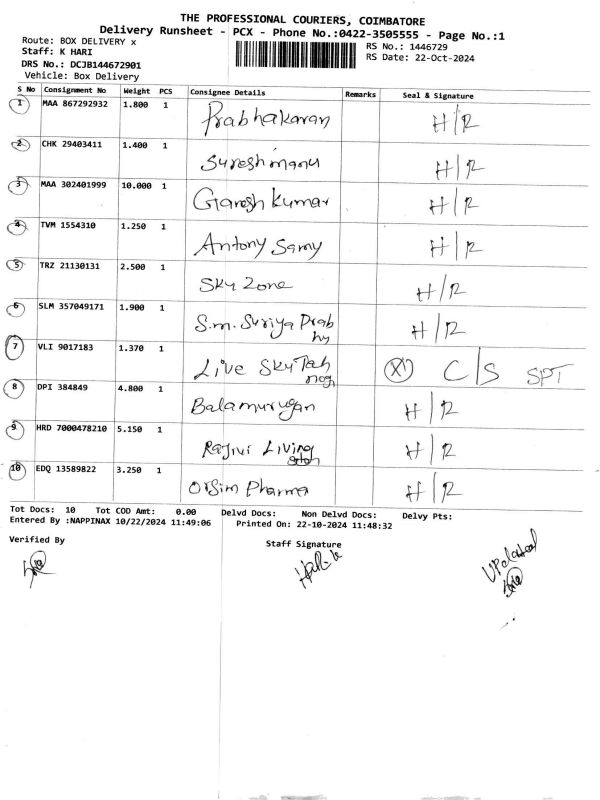 THE PROFESSIONAL COURIERS, COIMBATORE
Delivery Runsheet - PCX - Phone No.:0422-3505555 - Page No.:1
Route: BOX DELIVERY x
Staff: K HARI
RS No.: 1446729
DRS No.: DCJB144672901
RS Date: 22-Oct-2024
Vehicle: Box Delivery
S No Consignment No Weight PCS Consignee Details Remarks Seal & Signature
1 MAA 867292932 1.800 1 Prabhakaran H/R
2 CHK 29403411 1.400 1 Sureshmanu H/R
3 MAA 302401999 10.000 1 Ganesh Kumar H/R
4 TVM 1554310 1.250 1 Antony Samy H/R
5 TRZ 21130131 2.500 1 Sky Zone H/R
6 SLM 357049171 1.900 1 S.m. Suriya Prab H/R
hy
7 VLI 9017183 1.370 1 Live Sky Tah X C/S SPT
nog
8 DPI 384849 4.800 1 Balamurugan H/R
9 HRD 7000478210 5.150 1 Rajivi Living H/R
10 EDQ 13589822 3.250 1 Orsim Pharma H/R
Tot Docs: 10 Tot COD Amt: 0.00 Delvd Docs: Non Delvd Docs: Delvy Pts:
Entered By :NAPPINAX 10/22/2024 11:49:06 Printed On: 22-10-2024 11:48:32
Verified By
Staff Signature
UPdated